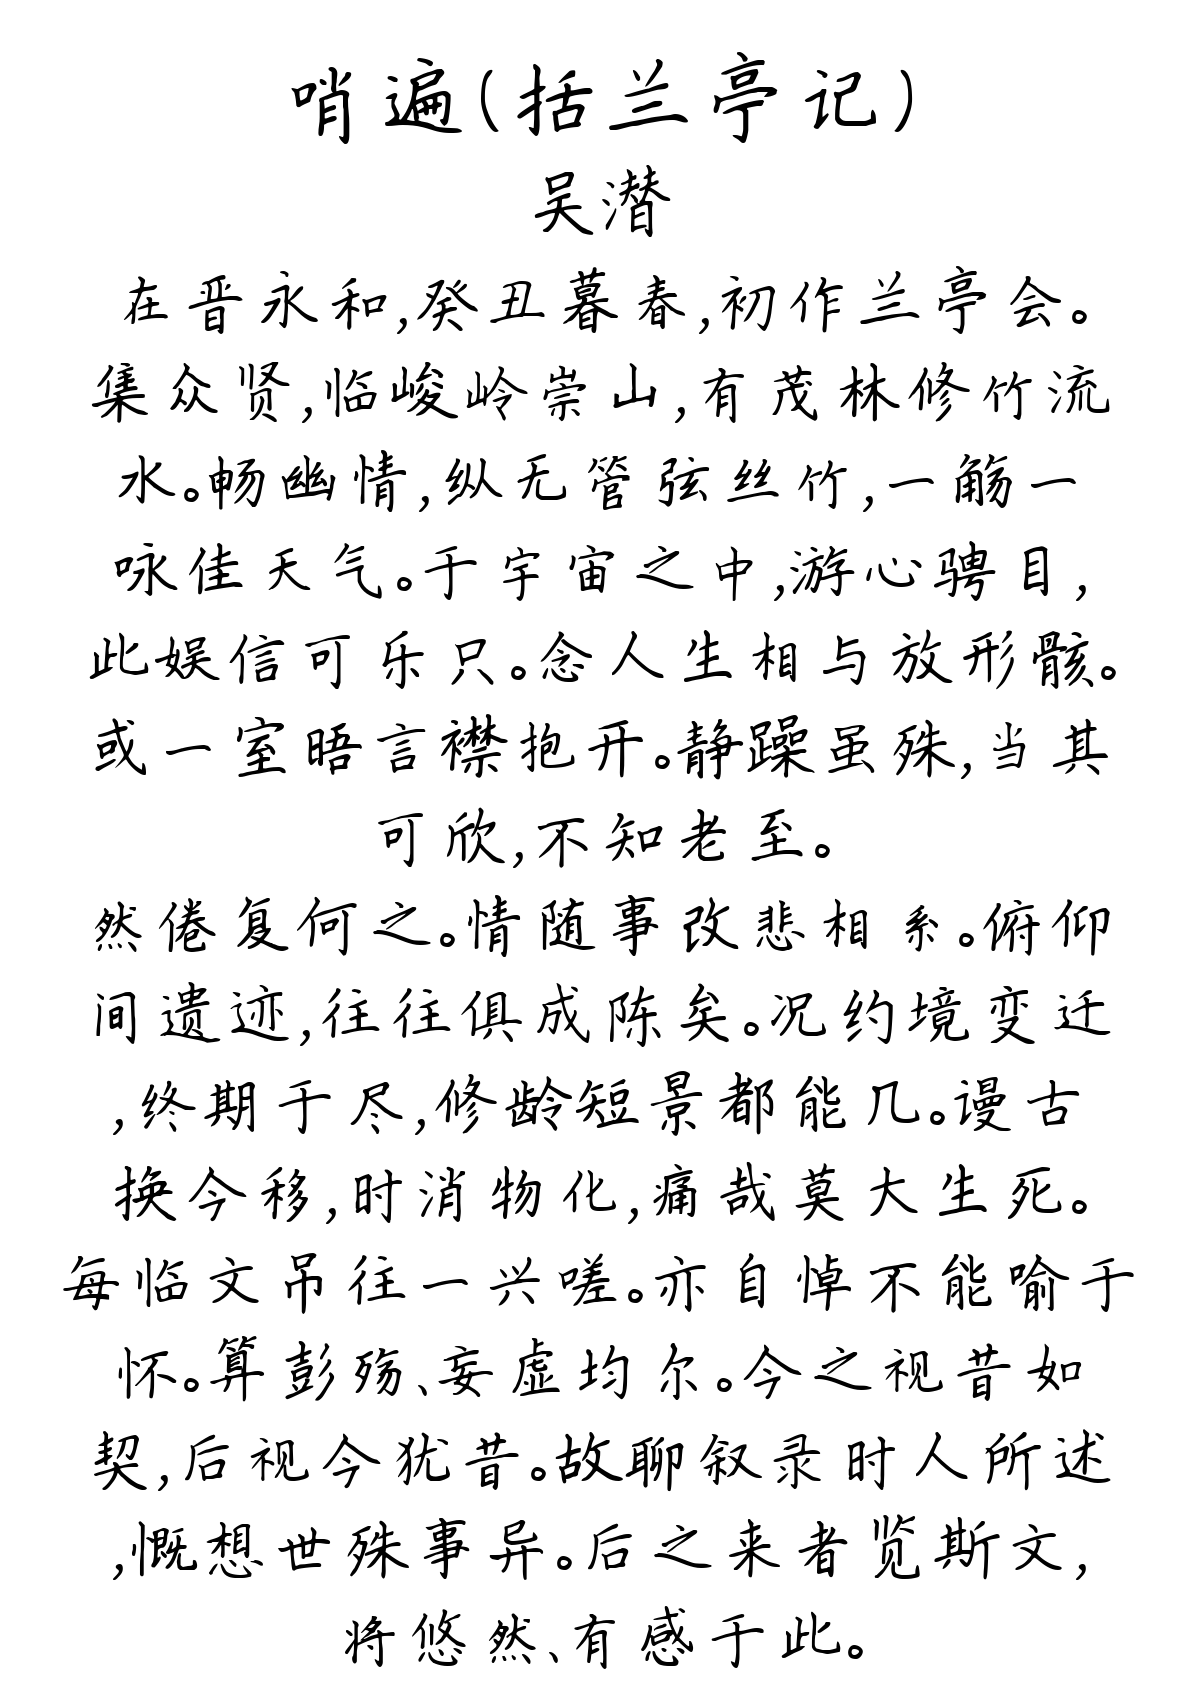 哨遍(括兰亭记)
吴潜
在晋永和,癸丑暮春,初作兰亭会。
集众贤,临峻岭崇山,有茂林修竹流
水。畅幽情,纵无管弦丝竹,一觞一
咏佳天气。于宇宙之中,游心骋目,
此娱信可乐只。念人生相与放形骸。
或一室晤言襟抱开。静躁虽殊,当其
可欣,不知老至。
然倦复何之。情随事改悲相系。俯仰
间遗迹,往往俱成陈矣。况约境变迁
,终期于尽,修龄短景都能几。谩古
换今移,时消物化,痛哉莫大生死。
每临文吊往一兴嗟。亦自悼不能喻于
怀。算彭殇、妄虚均尔。今之视昔如
契,后视今犹昔。故聊叙录时人所述
,慨想世殊事异。后之来者览斯文,
将悠然、有感于此。